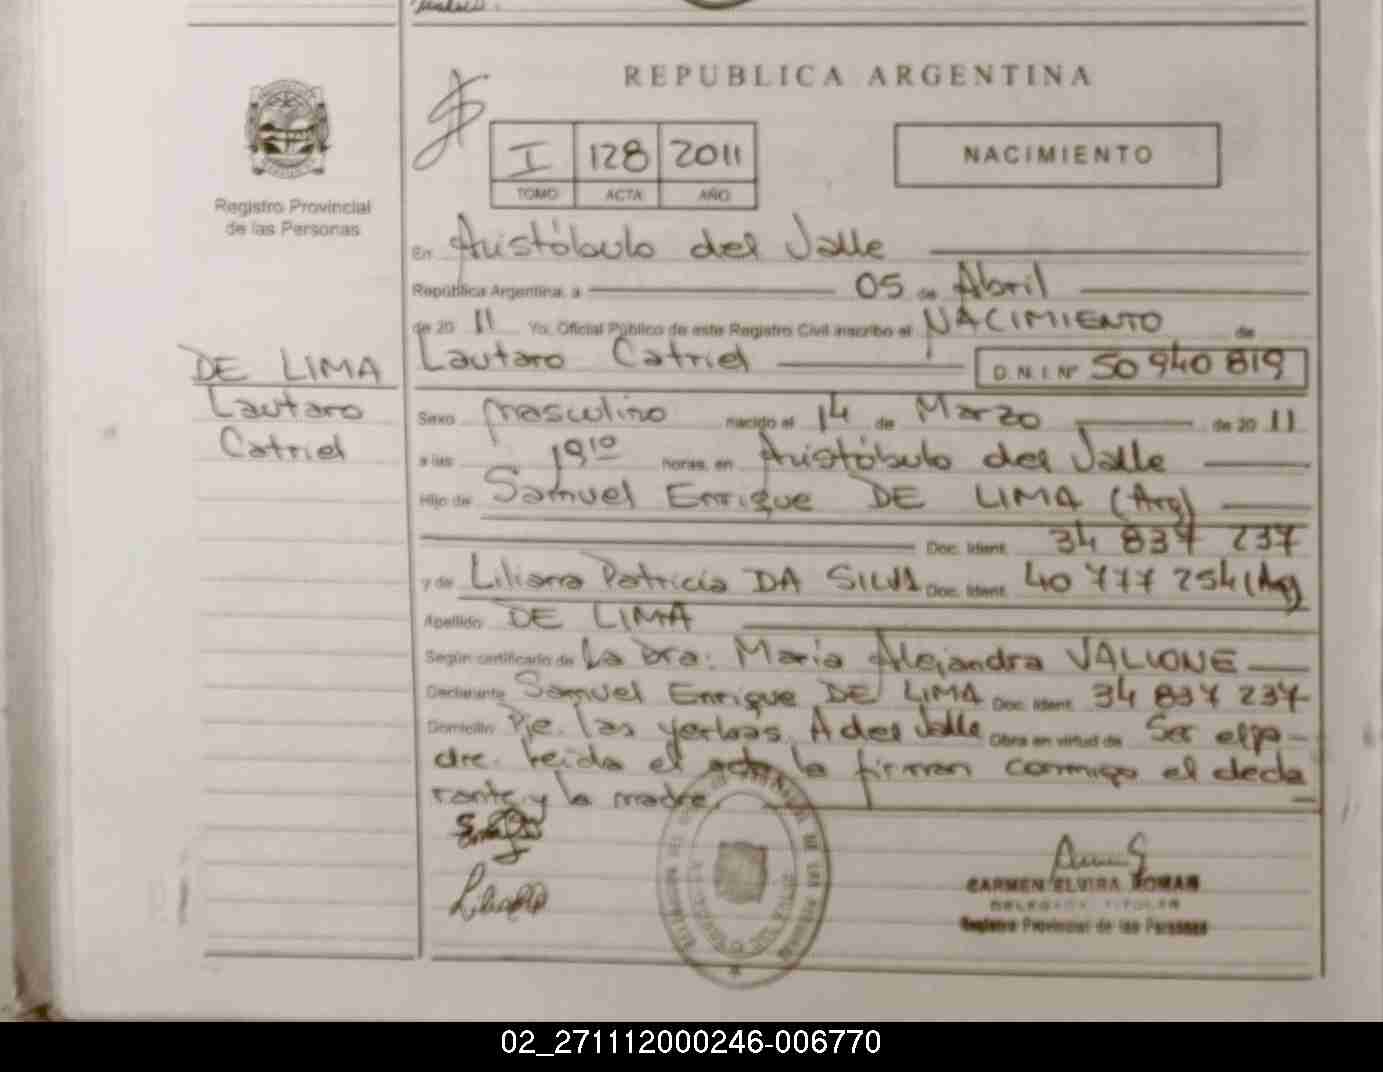 REPUBLICA ARGENTINA
I 128 2011
TOMO ACTA AÑO
NACIMIENTO
Registro Provincial
de las Personas
DE LIMA
Lautaro
Catriel
En Aristóbulo del Valle
República Argentina, a 05 de Abril
de 2011 Yo, Oficial Público de este Registro Civil inscribo el NACIMIENTO de
Lautaro Catriel D.N.I. Nº 50 940 819
Sexo masculino nacido el 14 de Marzo de 2011
a las 19 10 horas, en Aristóbulo del Valle
Hijo de Samuel Enrique DE LIMA (Arg)
Doc. Ident. 34 837 237
y de Liliana Patricia DA SILVA Doc. Ident. 40 777 254 (Arg)
Apellido DE LIMA
Según certificado de La Dra. María Alejandra VALLONE
Declarante Samuel Enrique DE LIMA Doc. Ident. 34 837 237
Domicilio Pje. las yerbas, A del Valle Obra en virtud de Ser el pa-
dre. Leída el acta la firman conmigo el decla
rante y la madre.
CARMEN ELVIRA ROMAN
DELEGADA TITULAR
Registro Provincial de las Personas
02_271112000246-006770